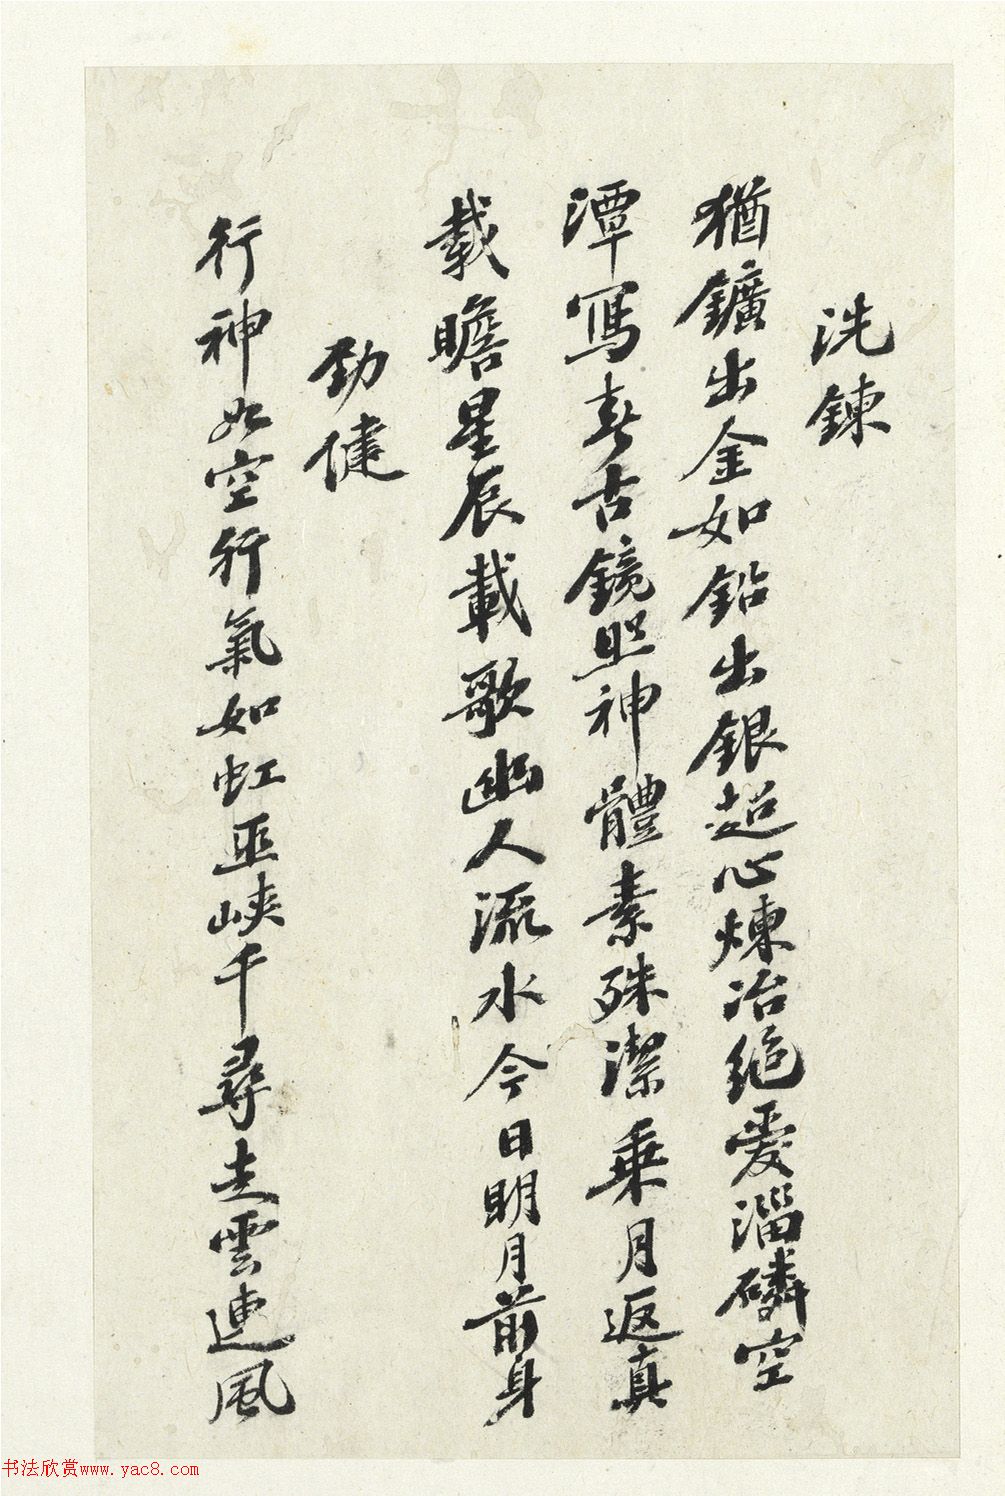 洗鍊
猶鑛出金如鉛出銀超心煉冶絕愛淄磷空
潭寫春古鏡照神體素殊潔乘月返真
載瞻星辰載歌幽人流水今日明月前身
勁健
行神如空行氣如虹巫峽千尋走雲連風
书法欣赏www.yac8.com